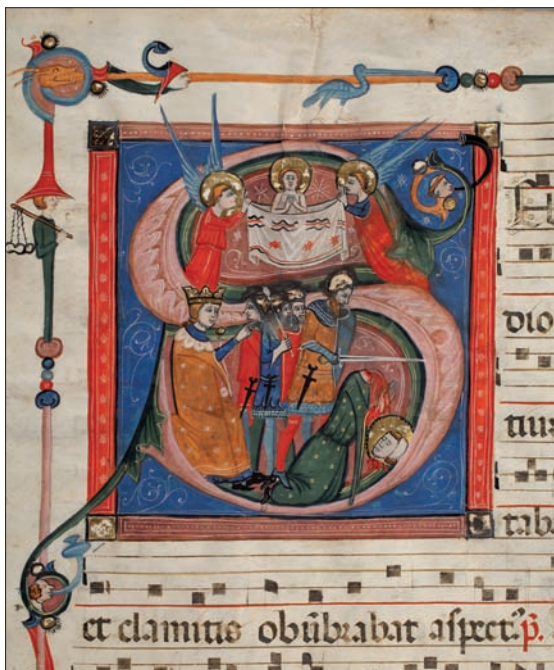 dio
tab
et clamitis obūbrabat aspectꝰ. p̄.